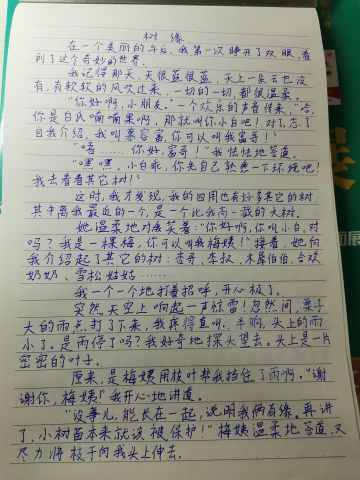 树缘
在一个美丽的午后，我第一次睁开了双眼，看
到了这个奇妙的世界。
我记得那天，天很蓝很蓝，天上一朵云也没
有，有软软的风吹过来，一切的一切，都很温柔。
"你好啊，小朋友。"一个欢乐的声音传来，"哈，
你是白氏喃喃果啊，那就叫你小白吧！对了，忘了
自我介绍，我叫慕容富，你可以叫我富哥！"
"唔……你好，富哥！"我怯怯地答道。
"嘿嘿，小白乖，你先自己熟悉一下环境吧！
我去看看其它树！"
这时，我才发现，我的四周也有好多其它的树。
其中离我最近的一个，是一个比我高一截的大树。
她温柔地对我笑着："你好啊，你叫小白，对
吗？我是一棵梅，你可以叫我梅姨！"接着，她向
我介绍起了其它的树：李哥、李叔、木犀伯伯、合欢
奶奶、雪松姑姑……
我一个一个地打着招呼，开心极了。
突然，天空上响起一声惊雷！忽然间，栗子
大的雨点，打了下来，我疼得直叫。半晌，头上的雨
小了。是雨停了吗？我好奇地探头望去，头上是一片
密密的叶子。
原来，是梅姨用枝叶帮我挡住了雨啊，"谢
谢你，梅姨！"我开心地讲道。
"没事儿，能长在一起，说明我俩有缘。再讲
了，小树苗本来就该被保护！"梅姨温柔地答道，又
尽力将枝干向我头上伸去。